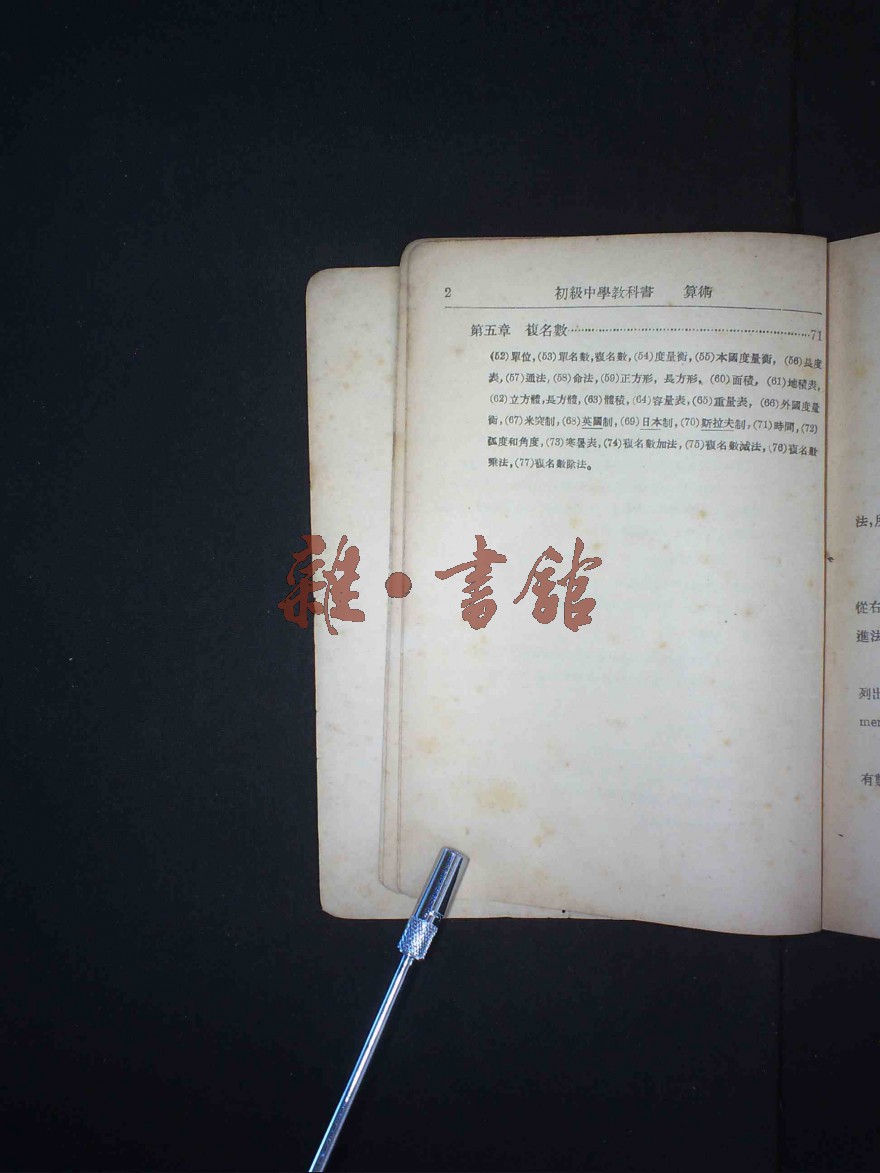 2 初級中學教科書 算術
第五章 複名數 71
(52)單位,(53)單名數,複名數,(54)度量衡,(55)本國度量衡, (56)長度
表,(57)通法,(58)命法,(59)正方形, 長方形, (60)面積, (61)地積表,
(62)立方體,長方體,(63)體積,(64)容量表,(65)重量表, (66)外國度量
衡,(67)米突制,(68)英國制,(69)日本制,(70)斯拉夫制,(71)時間,(72)
弧度和角度,(73)寒暑表,(74)複名數加法,(75)複名數減法,(76)複名數
乘法,(77)複名數除法。
雜·書館
法,
從右
進法
列出
mer
有